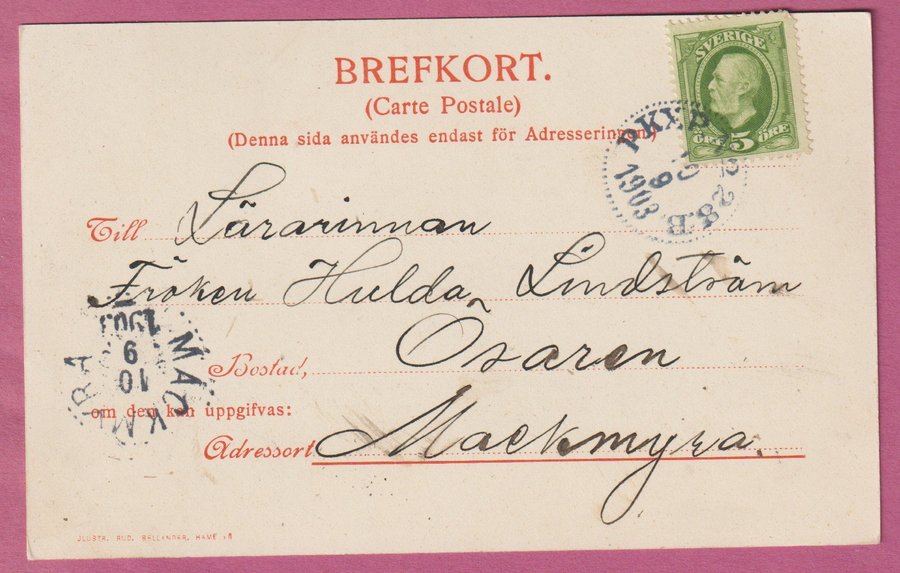 SVERIGE
5 ÖRE
BREFKORT.
(Carte Postale)
(Denna sida användes endast för Adresseringen)
PKXP 28.B
10
9
1903
Till Lärarinnan
Fröken Hulda Lindström
Bostad, Ösaren
om den kan uppgifvas:
Adressort Mackmyra.
MACKMYRA
10
9
1903
JLUSTR. RUD. BELLANDER,